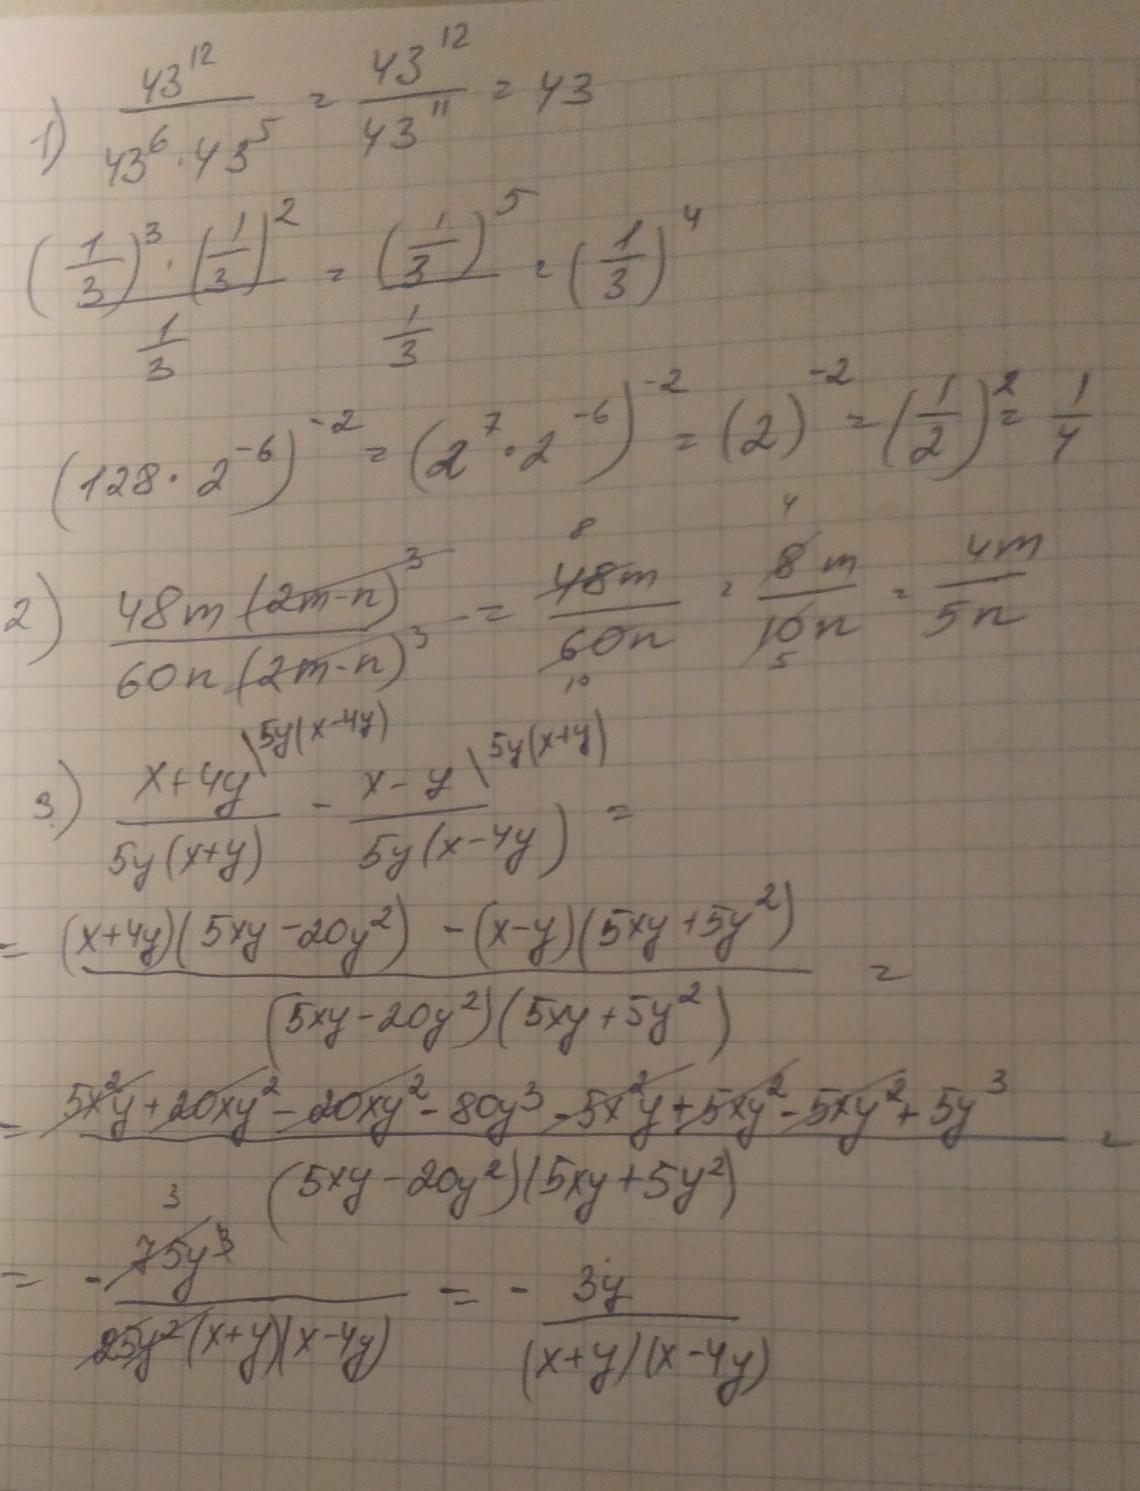 1) 43^12 / (43^6 · 43^5) = 43^12 / 43^11 = 43
((1/3)^3 · (1/3)^2) / (1/3) = (1/3)^5 / (1/3) = (1/3)^4
(128 · 2^-6)^-2 = (2^7 · 2^-6)^-2 = (2)^-2 = (1/2)^2 = 1/4
2) 48m(2m-n)^3 / 60n(2m-n)^3 = 48m 8 / 60n 10 = 8m 4 / 10n 5 = 4m / 5n
3.) (x+4y) \5y(x-4y) / 5y(x+y) - (x-y) \5y(x+y) / 5y(x-4y) =
= ((x+4y)(5xy-20y^2) - (x-y)(5xy+5y^2)) / (5xy-20y^2)(5xy+5y^2) =
= (5x^2y + 20xy^2 - 20xy^2 - 80y^3 - 5x^2y + 5xy^2 - 5xy^2 + 5y^3) / (5xy-20y^2)(5xy+5y^2) =
= - 75y^3 3 / 25y^2(x+y)(x-4y) = - 3y / (x+y)(x-4y)